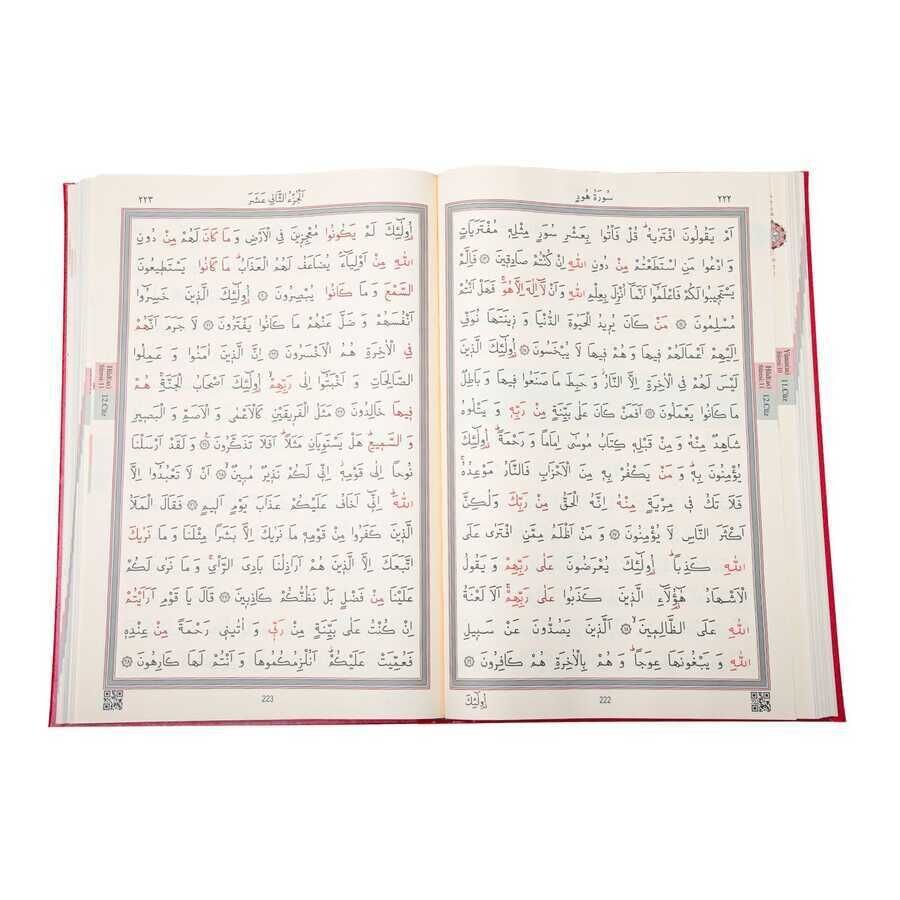 سُورَةُ هُودٍ
٢٢٢
اَمْ يَقُولُونَ افْتَرٰيهُۜ قُلْ فَأْتُوا بِعَشْرِ سُوَرٍ مِثْلِه۪ مُفْتَرَيَاتٍ
وَادْعُوا مَنِ اسْتَطَعْتُمْ مِنْ دُونِ اللّٰهِ اِنْ كُنْتُمْ صَادِق۪ينَ ۝ فَاِلَّمْ
يَسْتَج۪يبُوا لَكُمْ فَاعْلَمُٓوا اَنَّمَٓا اُنْزِلَ بِعِلْمِ اللّٰهِ وَاَنْ لَٓا اِلٰهَ اِلَّا هُوَۚ فَهَلْ اَنْتُمْ
مُسْلِمُونَ ۝ مَنْ كَانَ يُر۪يدُ الْحَيٰوةَ الدُّنْيَا وَز۪ينَتَهَا نُوَفِّ
اِلَيْهِمْ اَعْمَالَهُمْ ف۪يهَا وَهُمْ ف۪يهَا لَا يُبْخَسُونَ ۝ اُو۬لٰٓئِكَ الَّذ۪ينَ
لَيْسَ لَهُمْ فِي الْاٰخِرَةِ اِلَّا النَّارُۘ وَحَبِطَ مَا صَنَعُوا ف۪يهَا وَبَاطِلٌ
مَا كَانُوا يَعْمَلُونَ ۝ اَفَمَنْ كَانَ عَلٰى بَيِّنَةٍ مِنْ رَبِّه۪ وَيَتْلُوهُ
شَاهِدٌ مِنْهُ وَمِنْ قَبْلِه۪ كِتَابُ مُوسٰٓى اِمَامًا وَرَحْمَةًۜ اُو۬لٰٓئِكَ
يُؤْمِنُونَ بِه۪ۜ وَمَنْ يَكْفُرْ بِه۪ مِنَ الْاَحْزَابِ فَالنَّارُ مَوْعِدُهُۚ
فَلَا تَكُ ف۪ي مِرْيَةٍ مِنْهُ اِنَّهُ الْحَقُّ مِنْ رَبِّكَ وَلٰكِنَّ
اَكْثَرَ النَّاسِ لَا يُؤْمِنُونَ ۝ وَمَنْ اَظْلَمُ مِمَّنِ افْتَرٰى عَلَى
اللّٰهِ كَذِبًاۜ اُو۬لٰٓئِكَ يُعْرَضُونَ عَلٰى رَبِّهِمْ وَيَقُولُ
الْاَشْهَادُ هٰٓؤُ۬لَٓاءِ الَّذ۪ينَ كَذَبُوا عَلٰى رَبِّهِمْۚ اَلَا لَعْنَةُ
اللّٰهِ عَلَى الظَّالِم۪ينَ ۝ اَلَّذ۪ينَ يَصُدُّونَ عَنْ سَب۪يلِ
اللّٰهِ وَيَبْغُونَهَا عِوَجًاۜ وَهُمْ بِالْاٰخِرَةِ هُمْ كَافِرُونَ ۝
222
اُو۬لٰٓئِكَ
اَلْجُزْءُ الثَّان۪ي عَشَرَ
٢٢٣
اُو۬لٰٓئِكَ لَمْ يَكُونُوا مُعْجِز۪ينَ فِي الْاَرْضِ وَمَا كَانَ لَهُمْ مِنْ دُونِ
اللّٰهِ مِنْ اَوْلِيَٓاءَۢ يُضَاعَفُ لَهُمُ الْعَذَابُۜ مَا كَانُوا يَسْتَط۪يعُونَ
السَّمْعَ وَمَا كَانُوا يُبْصِرُونَ ۝ اُو۬لٰٓئِكَ الَّذ۪ينَ خَسِرُٓوا
اَنْفُسَهُمْ وَضَلَّ عَنْهُمْ مَا كَانُوا يَفْتَرُونَ ۝ لَا جَرَمَ اَنَّهُمْ
فِي الْاٰخِرَةِ هُمُ الْاَخْسَرُونَ ۝ اِنَّ الَّذ۪ينَ اٰمَنُوا وَعَمِلُوا
الصَّالِحَاتِ وَاَخْبَتُٓوا اِلٰى رَبِّهِمْۙ اُو۬لٰٓئِكَ اَصْحَابُ الْجَنَّةِۚ هُمْ
ف۪يهَا خَالِدُونَ ۝ مَثَلُ الْفَر۪يقَيْنِ كَالْاَعْمٰى وَالْاَصَمِّ وَالْبَص۪يرِ
وَالسَّم۪يعِۜ هَلْ يَسْتَوِيَانِ مَثَلًاۜ اَفَلَا تَذَكَّرُونَ ۝ وَلَقَدْ اَرْسَلْنَا
نُوحًا اِلٰى قَوْمِه۪ۘ اِنّ۪ي لَكُمْ نَذ۪يرٌ مُب۪ينٌۙ ۝ اَنْ لَا تَعْبُدُٓوا اِلَّا
اللّٰهَۜ اِنّ۪ٓي اَخَافُ عَلَيْكُمْ عَذَابَ يَوْمٍ اَل۪يمٍ ۝ فَقَالَ الْمَلَاُ
الَّذ۪ينَ كَفَرُوا مِنْ قَوْمِه۪ مَا نَرٰيكَ اِلَّا بَشَرًا مِثْلَنَا وَمَا نَرٰيكَ
اتَّبَعَكَ اِلَّا الَّذ۪ينَ هُمْ اَرَاذِلُنَا بَادِيَ الرَّأْيِۚ وَمَا نَرٰى لَكُمْ
عَلَيْنَا مِنْ فَضْلٍ بَلْ نَظُنُّكُمْ كَاذِب۪ينَ ۝ قَالَ يَا قَوْمِ اَرَاَيْتُمْ
اِنْ كُنْتُ عَلٰى بَيِّنَةٍ مِنْ رَبّ۪ي وَاٰتٰين۪ي رَحْمَةً مِنْ عِنْدِه۪
فَعُمِّيَتْ عَلَيْكُمْۜ اَنُلْزِمُكُمُوهَا وَاَنْتُمْ لَهَا كَارِهُونَ ۝
223
11.Cüz
12.Cüz
12.Cüz